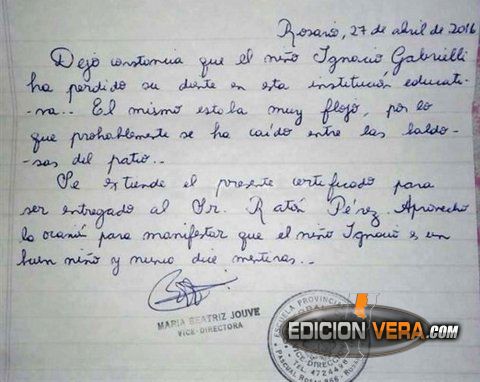 Rosario, 27 de abril de 2016
Dejo constancia que el niño Ignacio Gabrielli
ha perdido su diente en esta institución educati-
va.. El mismo estaba muy flojo, por lo
que probablemente se ha caído entre las baldo-
sas del patio..
Se extiende el presente certificado para
ser entregado al Sr. Ratón Pérez. Aprovecho
la ocasión para manifestar que el niño Ignacio es un
buen niño y nunca dice mentiras..
MARIA BEATRIZ JOUVE
VICE-DIRECTORA
ESCUELA PROVINCIAL
EDICION VERA.COM
VICE DIRECC
TEL. 4724498
PASCUAL ROSAS